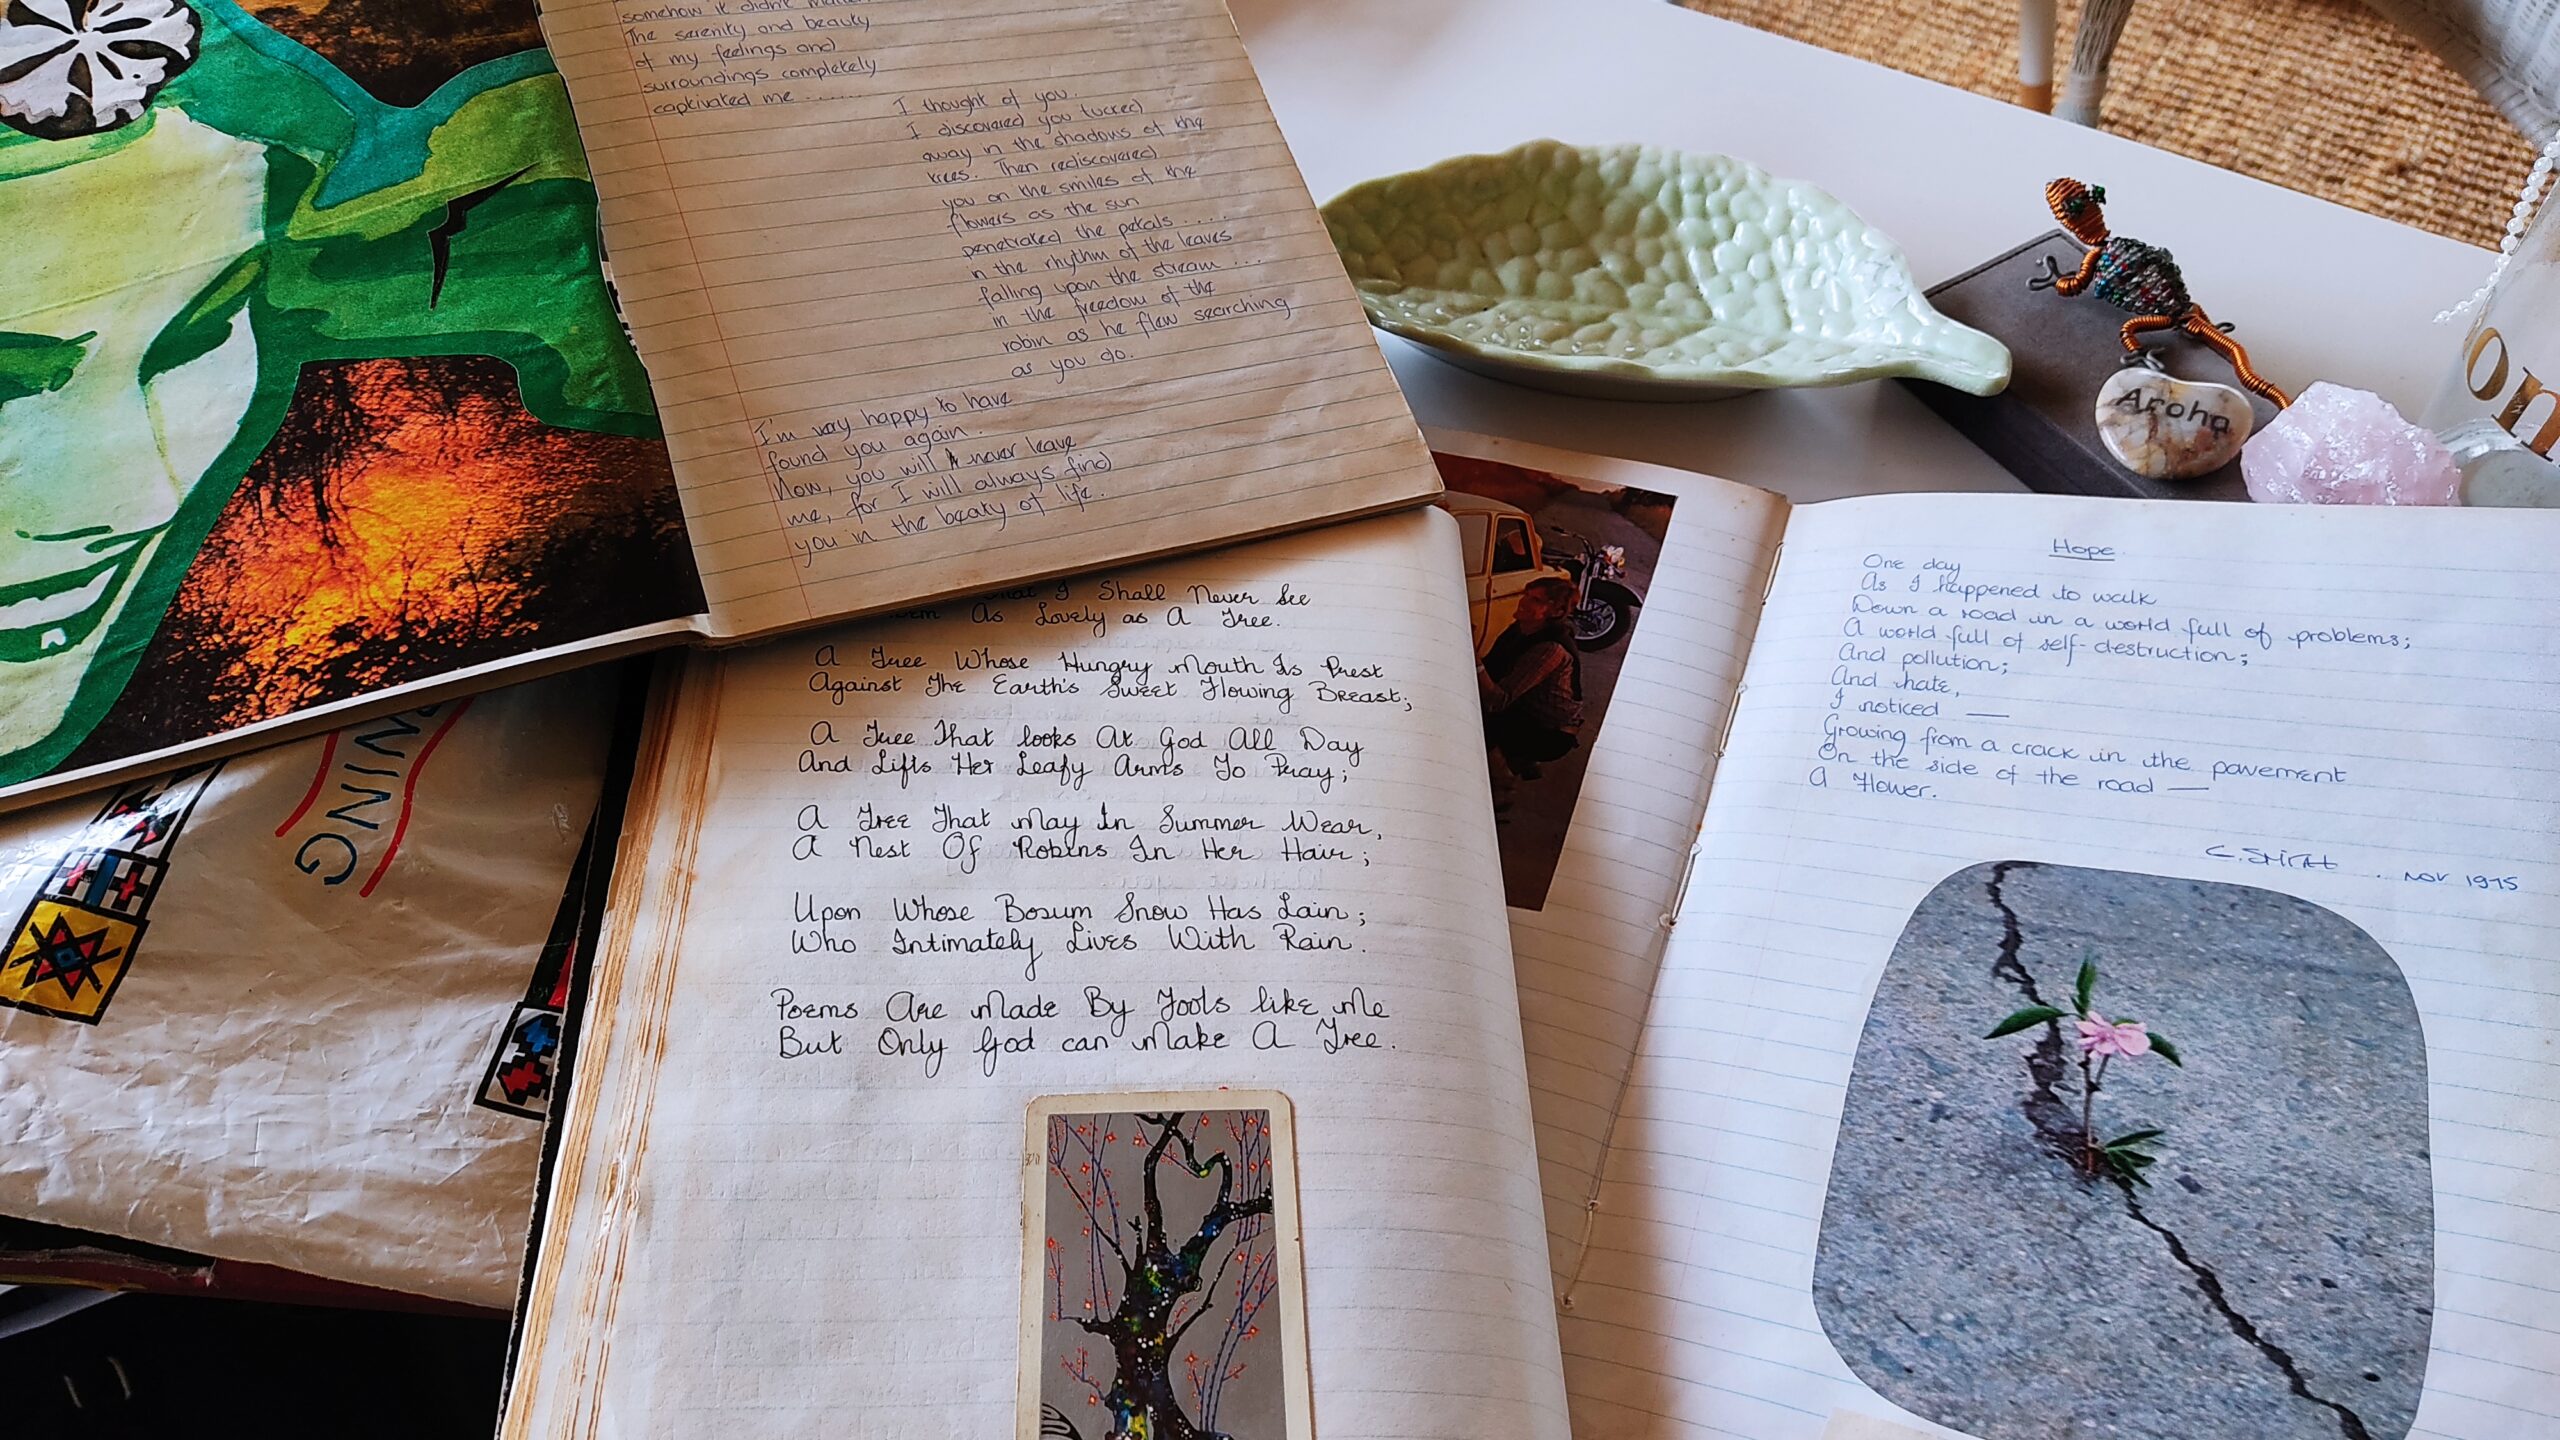 somehow it didn't
The serenity and beauty
of my feelings and
surroundings completely
captivated me ........
I thought of you.
I discovered you tucked
away in the shadows of the
trees. Then rediscovered
you on the smiles of the
flowers as the sun
penetrated the petals ....
in the rhythm of the leaves
falling upon the stream ...
in the freedom of the
robin as he flew searching
as you do.
I'm very happy to have
found you again.
Now, you will never leave
me, for I will always find
you in the beaty of life.
I Shall Never See
As Lovely as A Tree.
A Tree Whose Hungry Mouth Is Prest
Against The Earth's Sweet Flowing Breast;
A Tree That looks At God All Day
And Lifts Her Leafy Arms To Pray;
A Tree That May In Summer Wear,
A Nest Of Robins In Her Hair;
Upon Whose Bosum Snow Has Lain;
Who Intimately Lives With Rain.
Poems Are Made By Fools like Me
But Only God can Make A Tree.
Hope
One day
As I happened to walk
Down a road in a world full of problems;
A world full of self-destruction;
And pollution;
And hate,
I noticed —
Growing from a crack in the pavement
On the side of the road —
A Flower.
Nov 1975
Aroha